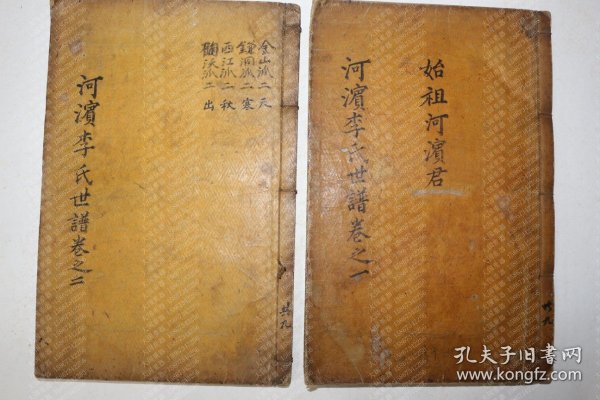 始祖河濱君
河濱李氏世譜卷之一
共九
金山派二 天
鏡洞派二 寒
西江派二 秋
派二 出
河濱李氏世譜卷之二
共九
孔夫子旧书网
www.kongfz.com